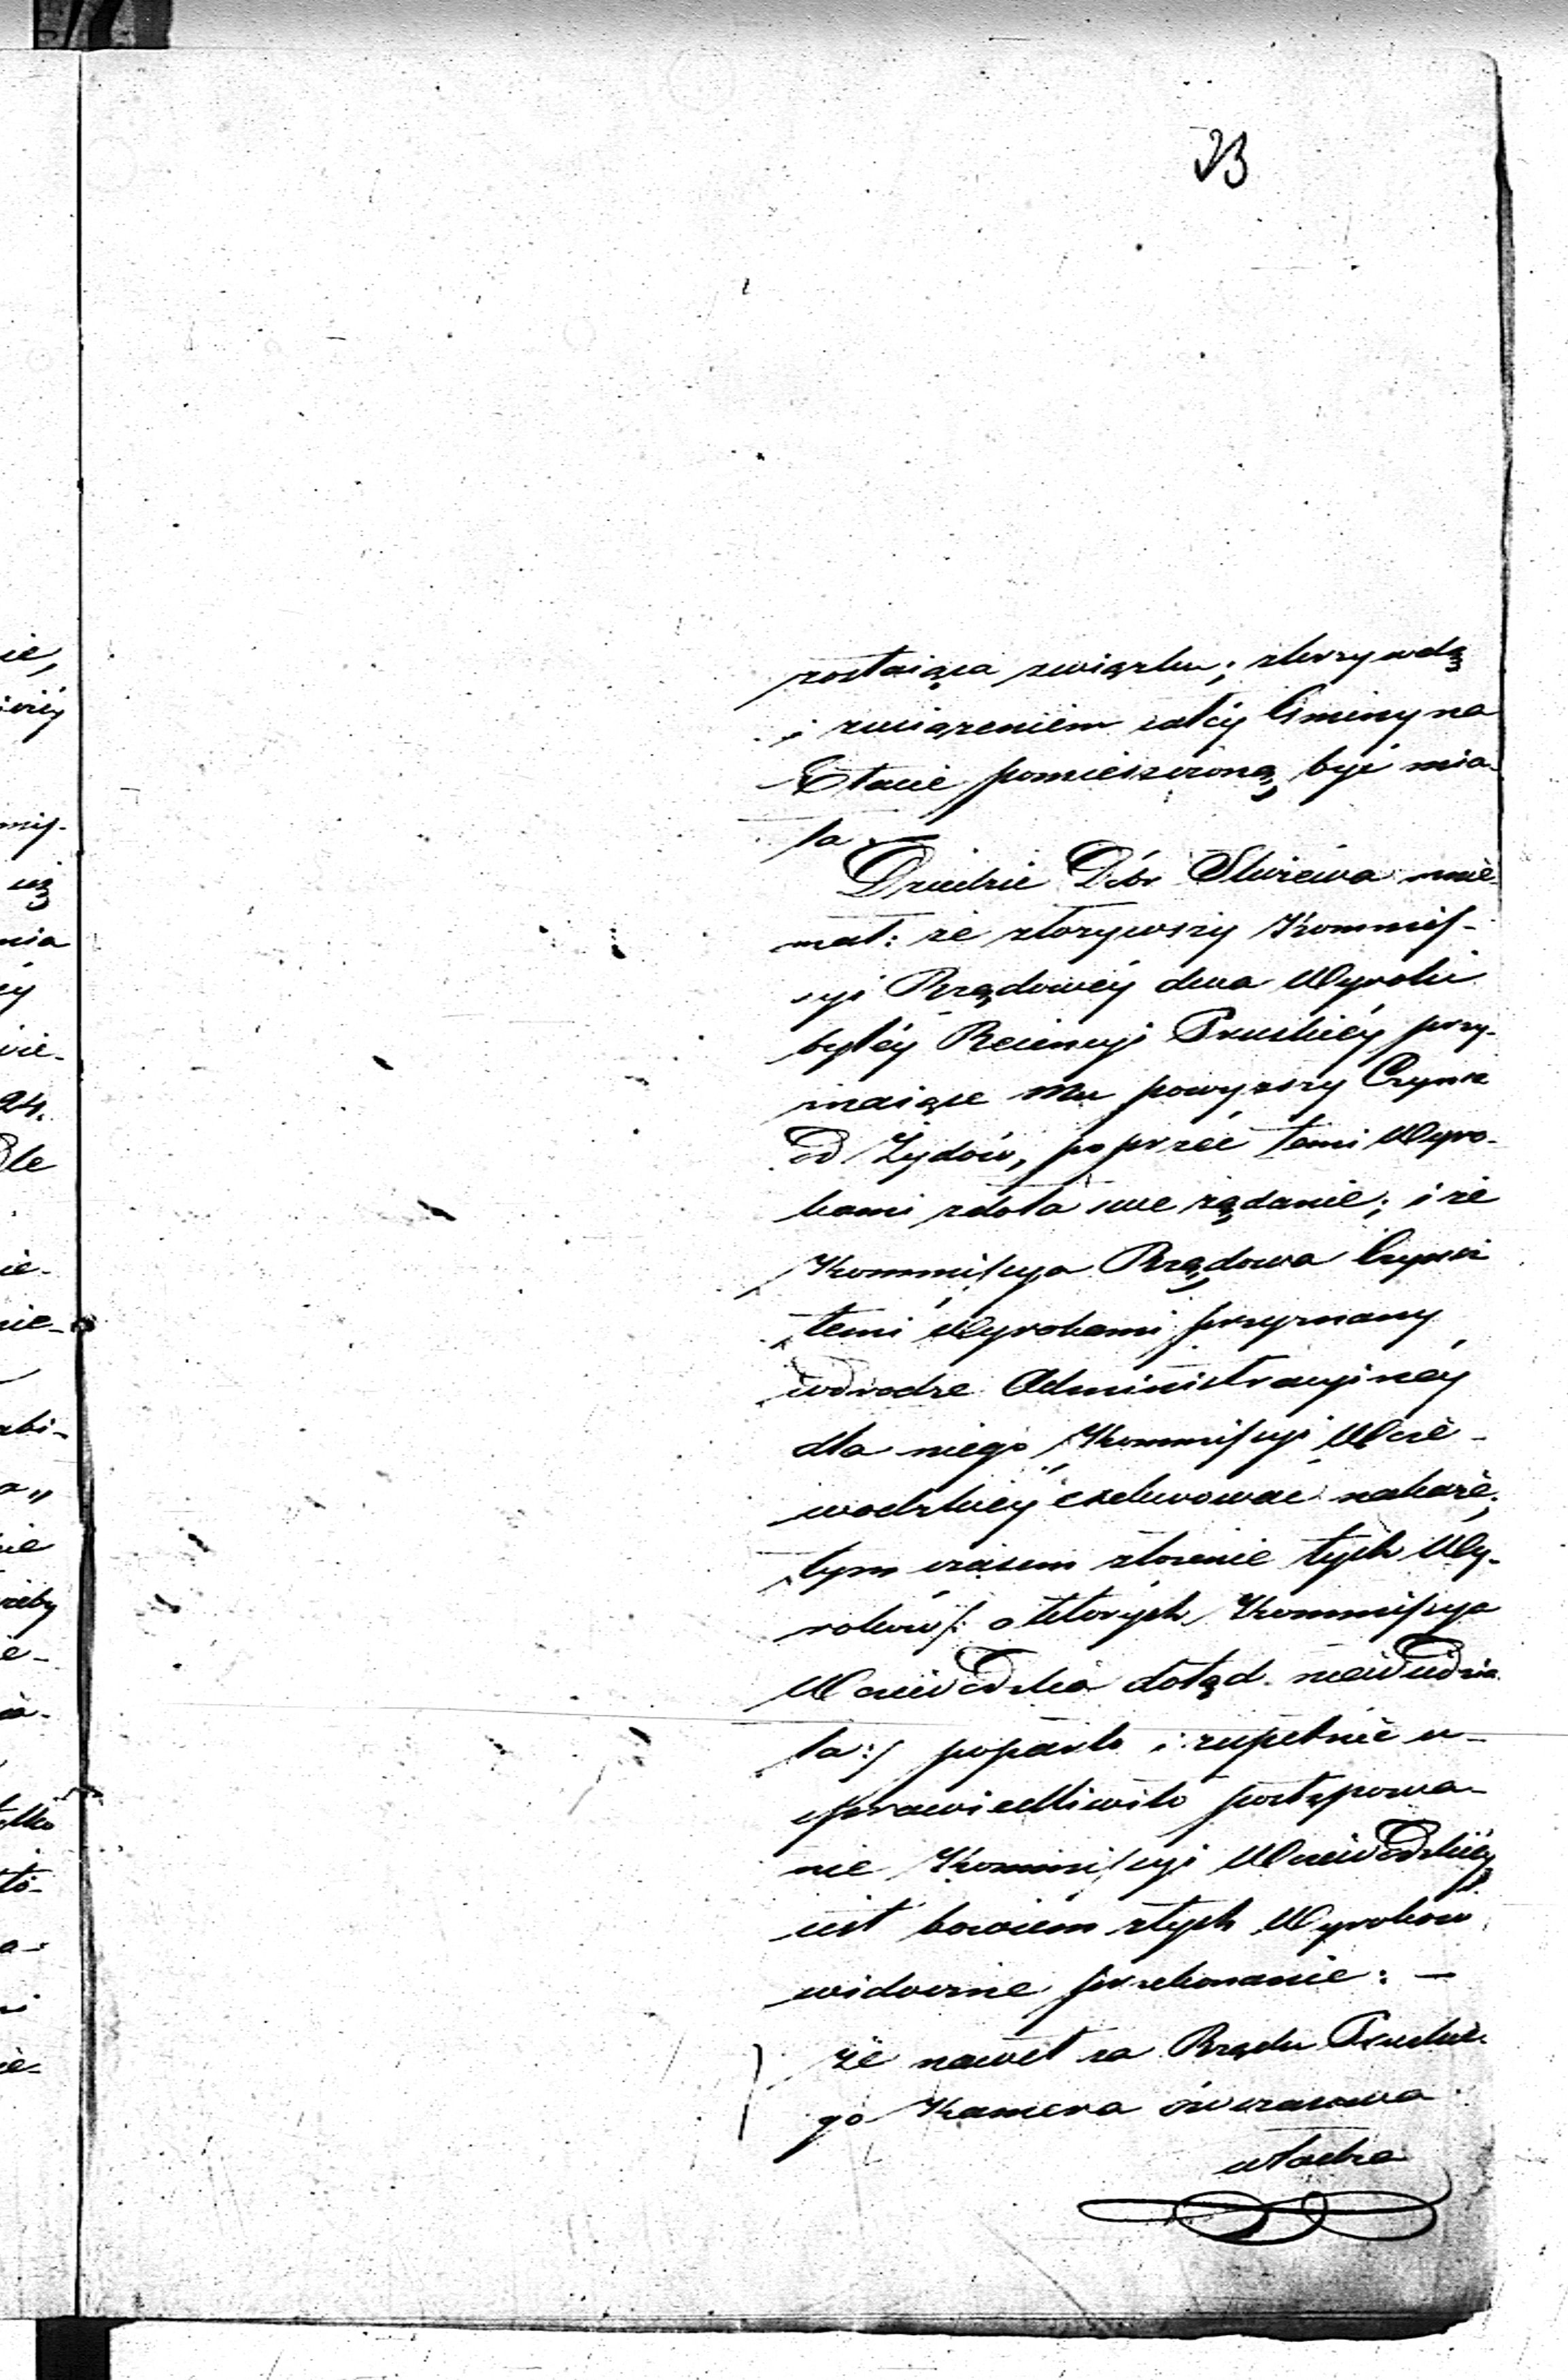 23
zostaiąca związku; zkrzywdą
i zuciążeniem całéy Gminy na
Etacie pomieszczoną być mia-
ła.
Dziedzic Dóbr Służewa mnie-
mał: że złożywszy Kommis-
syi Rządowéy dwa Wyroki
byłéy Reiencyi Pruskiéy przy-
znaiące Mu powyższy Czynsz
od Żydów, poprzeć temi Wyro-
kami zdoła swe żądanie; i że
Kommissya Rządowa Czynsz
temi Wyrokami przyznany
wdrodze Administracyinéy
dla niego Kommissyi Woie-
wodzkiéy exekwować nakaże;
tym czasem złożenie tych Wy-
roków /: o których Kommissya
Woiewodzka dotąd niewiedzia-
ła :/ poparło i zupełnie u-
sprawiedliwiło postępowa-
nie Kommissyi Woiewodzkiéy
iest bowiem ztych Wyroków
widoczne przekonanie: —
że nawet za Rządu Pruskie-
go Kamera ówczasowa
władza